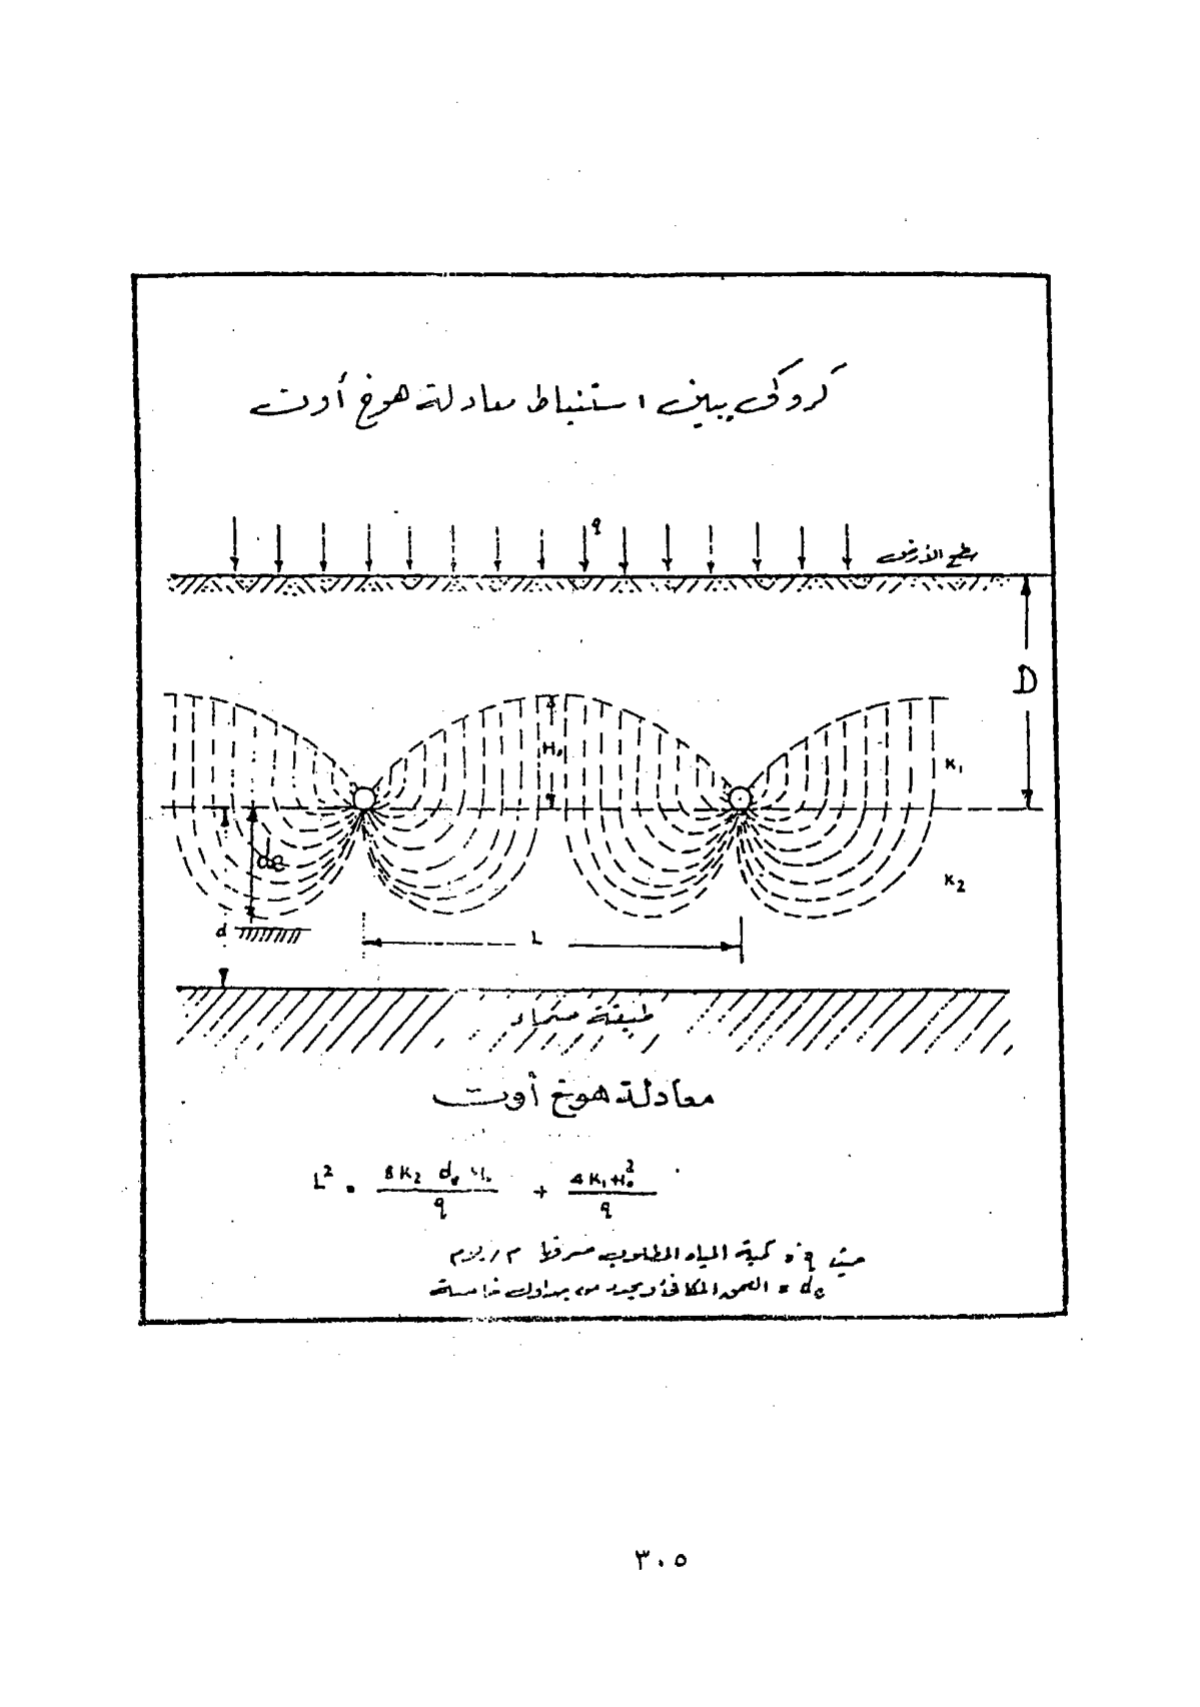 كروكى يبين استنباط معادلة هوخ أوت
q
سطح الأرض
D
H₀
K₁
de
K₂
d
L
طبقة صماء
معادلة هوخ أوت
L² = 8 K₂ dₑ H₀ / q + 4 K₁ H₀² / q
حيث q = كمية المياه المطلوب صرفها م / يوم
dₑ = العمق المكافئ ويحدد من جداول خاصة
٣٠٥